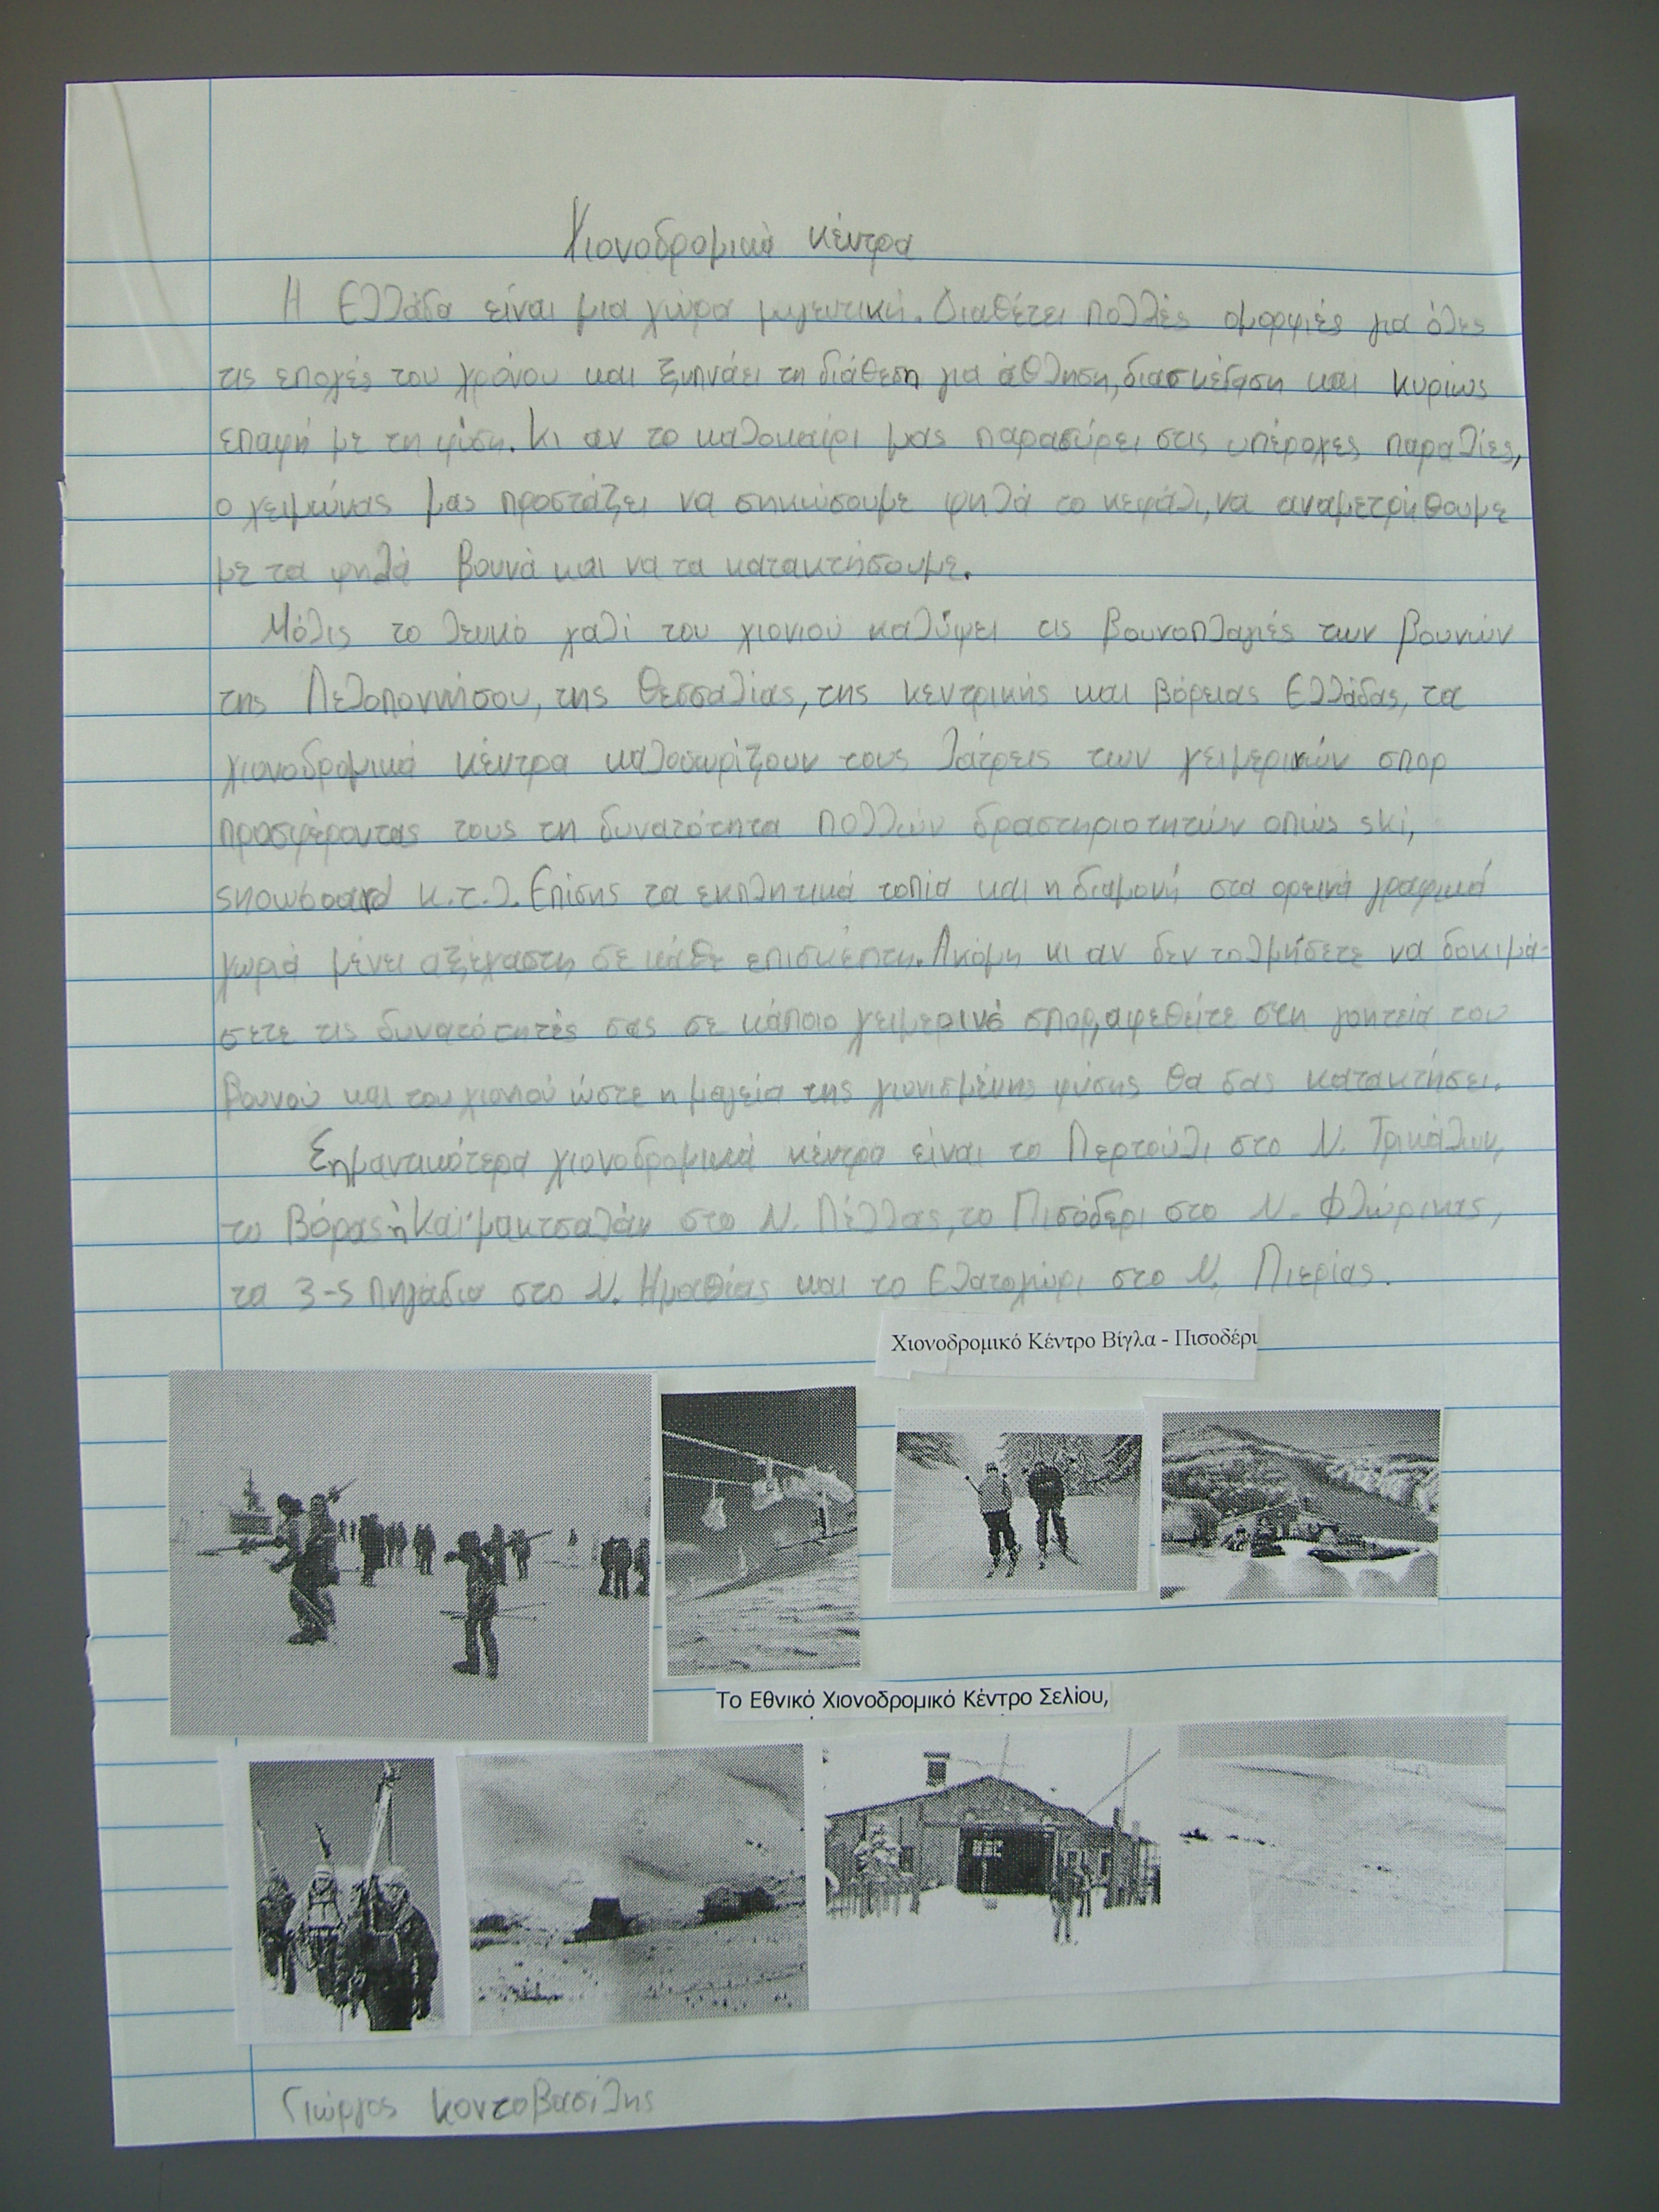 Χιονοδρομικά κέντρα
Η Ελλάδα είναι μια χώρα μαγευτική. Διαθέτει πολλές ομορφιές για όλες
τις εποχές του χρόνου και ξυπνάει τη διάθεση για άθληση, διασκέδαση και κυρίως
επαφή με τη φύση. Κι αν το καλοκαίρι μας παρασύρει στις υπέροχες παραλίες,
ο χειμώνας μας προστάζει να σηκώσουμε ψηλά το κεφάλι, να αναμετρηθουμε
με τα ψηλά βουνά και να τα κατακτήσουμε.
Μόλις το λευκό χαλί του χιονιού καλύψει τις βουνοπλαγιές των βουνών
της Πελοποννήσου, της Θεσσαλίας, της κεντρικής και βόρειας Ελλάδας, τα
χιονοδρομικά κέντρα καλοσωρίζουν τους λάτρεις των χειμερινών σπορ
προσφέροντας τους τη δυνατότητα πολλών δραστηριοτητών οπώς ski,
snowboard κ.τ.λ. Επίσης τα εκπλητικά τοπία και η διαμονή στα ορεινά γραφικά
χωριά μένει αξέχαστη σε κάθε επισκέπτη. Ακόμη κι αν δεν τολμήσετε να δοκιμά-
σετε τις δυνατότητές σας σε κάποιο χειμερινό σπορ, αφεθείτε στη γοητεία του
βουνού και του χιονιού ώστε η μαγεία της χιονισμένης φύσης θα σας κατακτήσει.
Σημαντικότερα χιονοδρομικά κέντρα είναι το Περτούλι στο Ν. Τρικάλων,
το Βόρας ή Καϊμακτσαλάν στο Ν. Πέλλας, το Πισόδερι στο Ν. Φλώρινας,
τα 3-5 Πηγάδια στο Ν. Ημαθίας και το Ελατοχώρι στο Ν. Πιερίας.
Χιονοδρομικό Κέντρο Βίγλα - Πισοδέρι
Το Εθνικό Χιονοδρομικό Κέντρο Σελίου,
Γιώργος Κοντοβασίλης